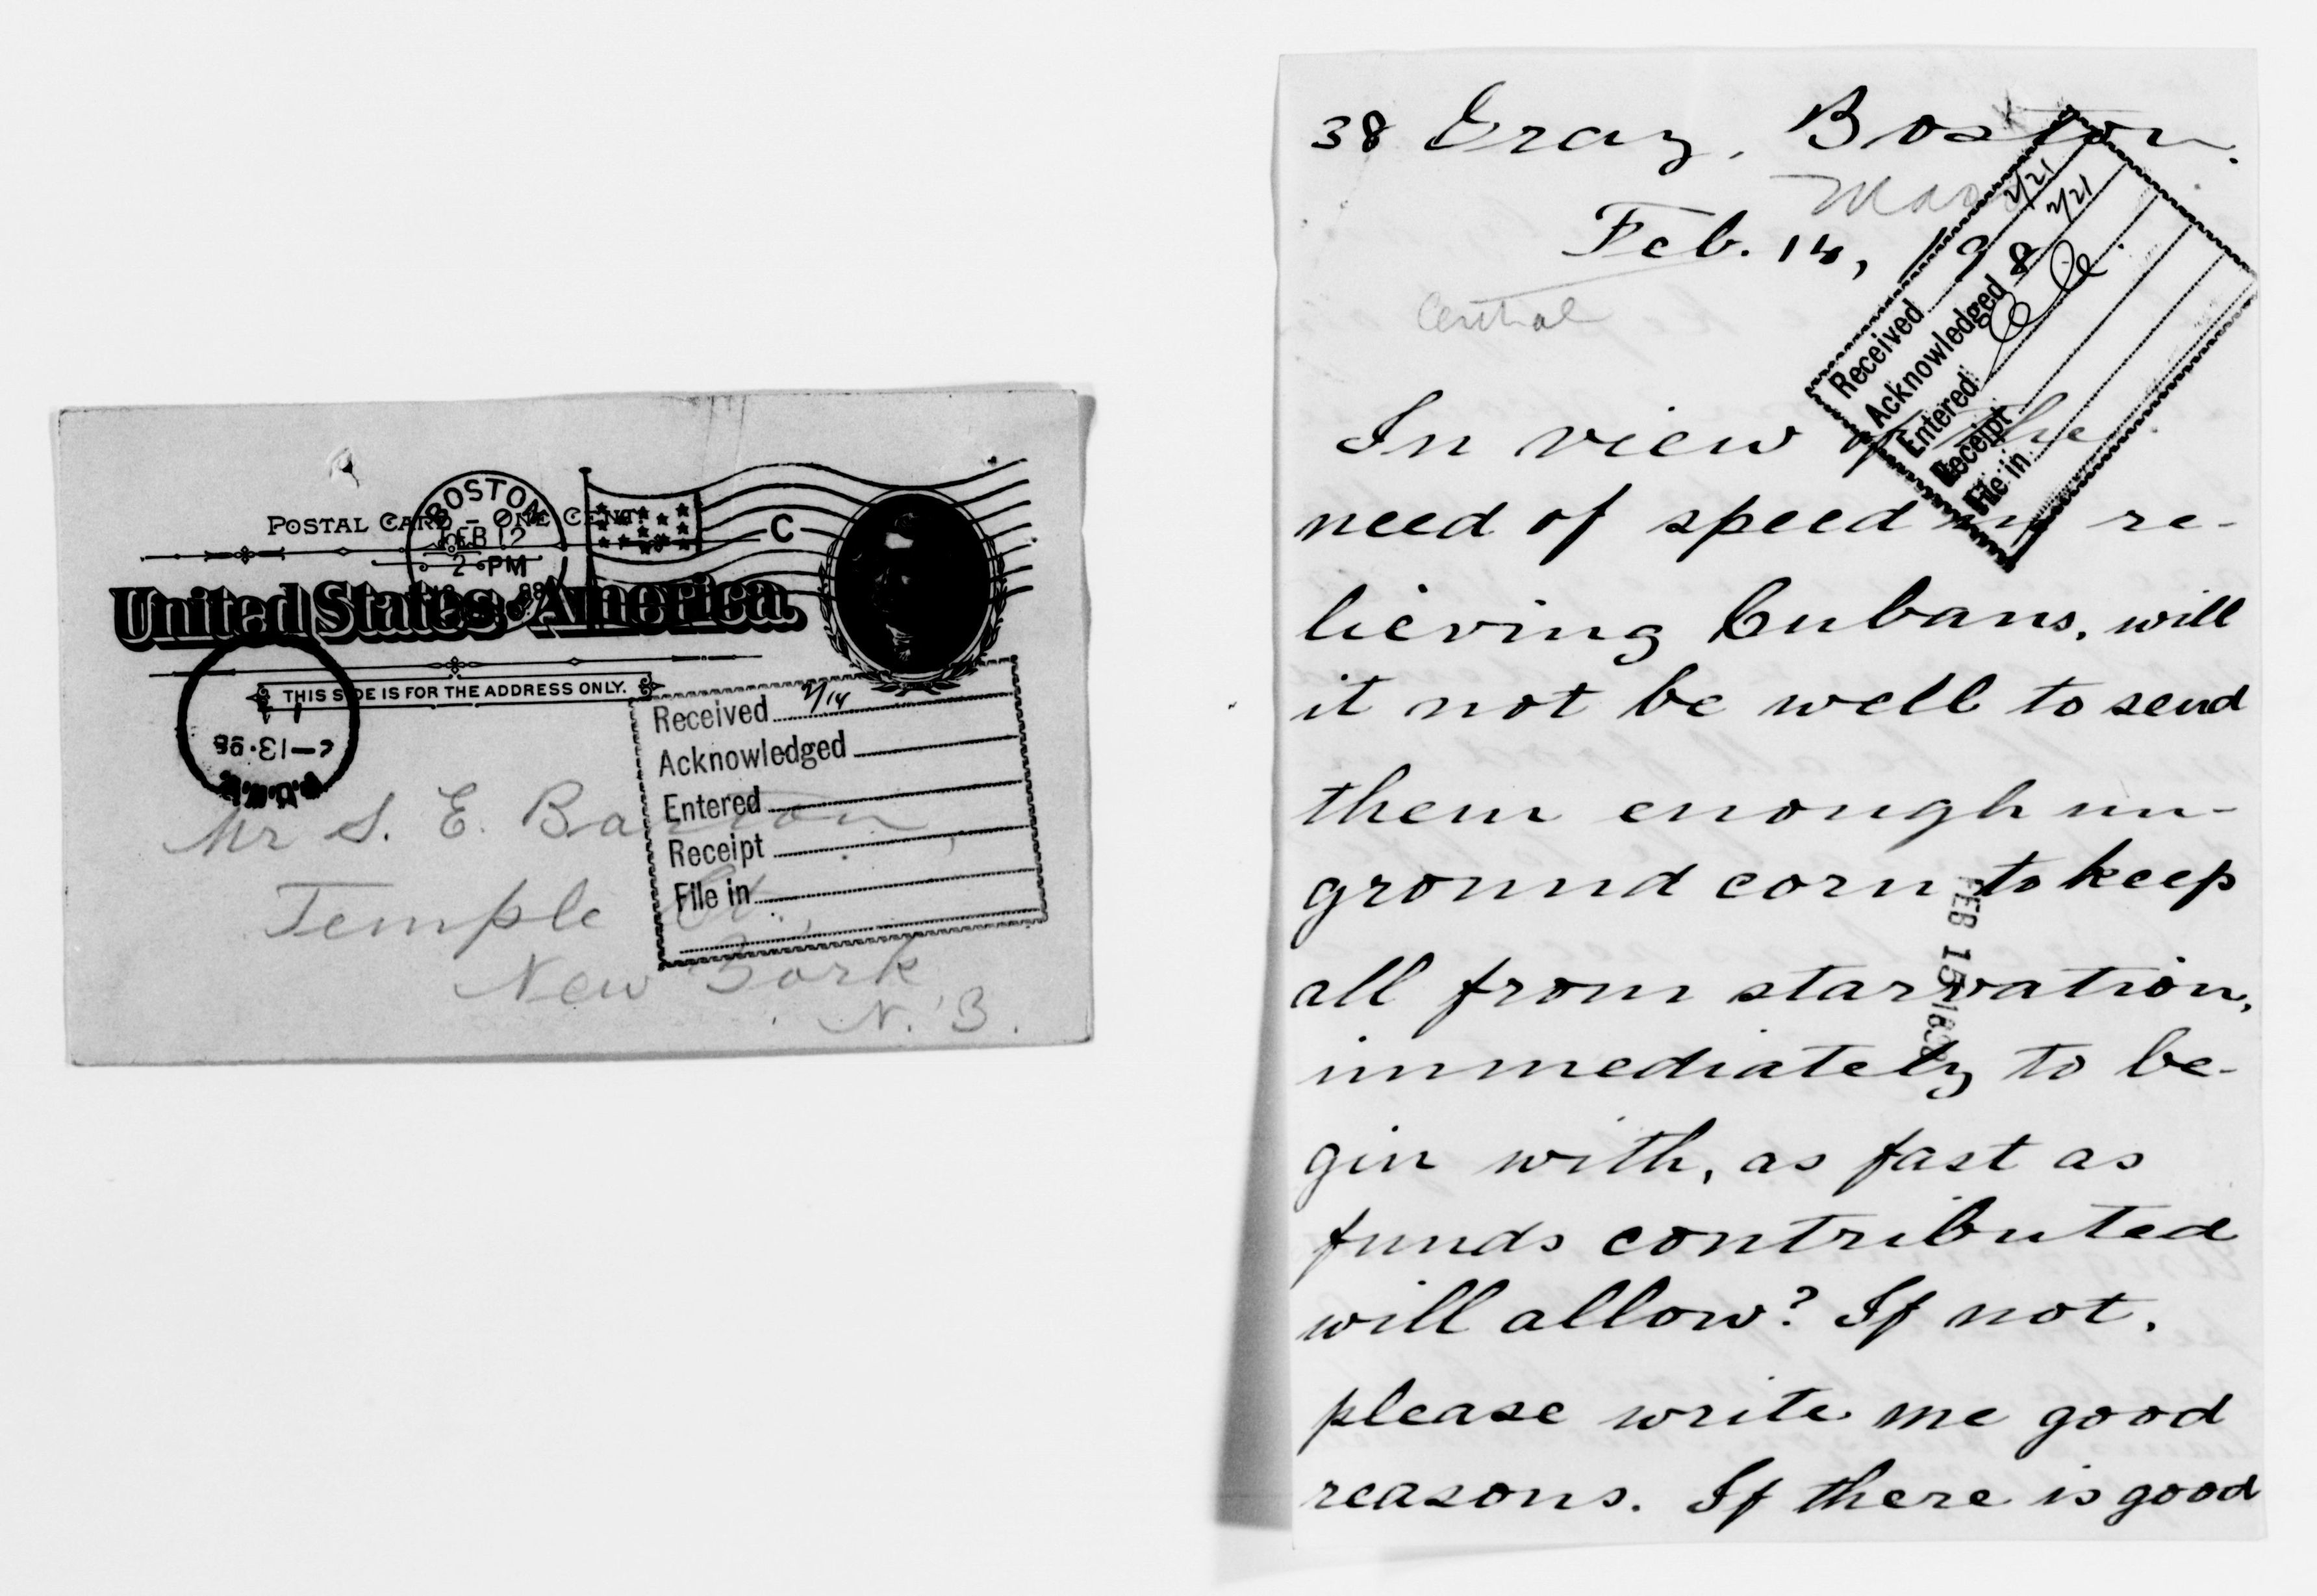 POSTAL CARD – ONE CENT.
BOSTON
FEB 12
2 PM
C
United States of America.
THIS SIDE IS FOR THE ADDRESS ONLY.
2–13·98
Received 2/14
Acknowledged
Entered
Receipt
File in
Mr S. E. Barton,
Temple Ct.,
New York
N. Y.
38 Gray, Boston.
Mass
Feb. 14, '98
Central
Received 2/21
Acknowledged 2/21
Entered
Receipt
File in
In view of the
need of speed in re-
lieving Cubans, will
it not be well to send
them enough un-
ground corn to keep
all from starvation,
immediately to be-
gin with, as fast as
funds contributed
will allow? If not,
please write me good
reasons. If there is good
FEB 15 1898